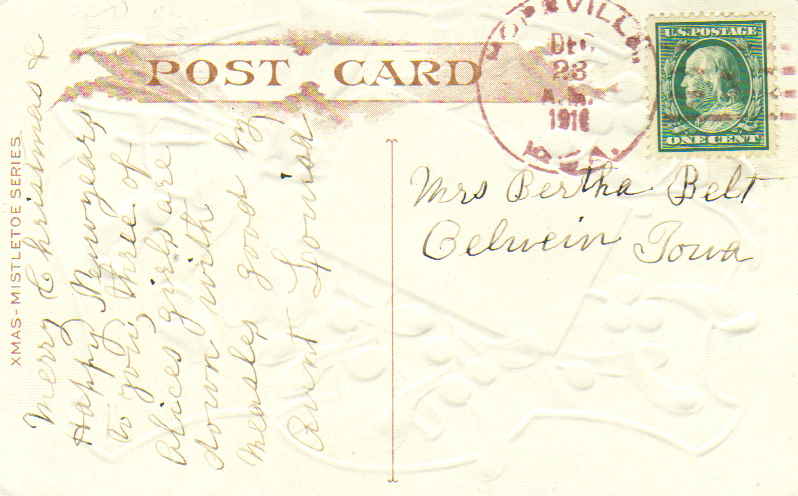 POST CARD
HOPEVILLE
DEC
23
A.M.
1910
U.S. POSTAGE
ONE CENT
XMAS-MISTLETOE SERIES.
Merry Christmas &
Happy Newyears
to you, three of
Alices girls are
down with
measles good by
Aunt Louisa
Mrs Bertha Belt
Oelwein Iowa